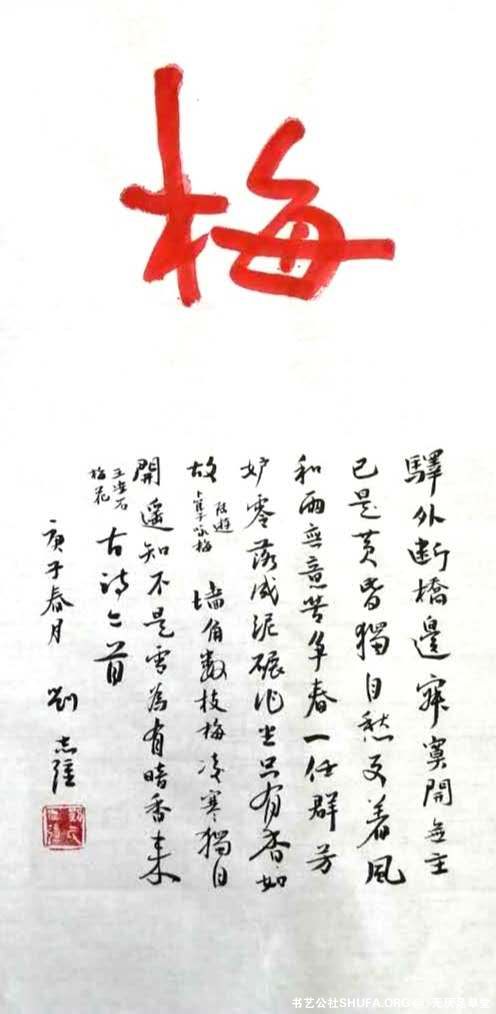 梅
驛外断橋邊寂寞開無主
已是黄昏獨自愁更著風
和雨無意苦争春一任群芳
妒零落成泥碾作尘只有香如
故
陆游
卜算子咏梅
墙角数枝梅凌寒獨自
開遥知不是雪為有暗香来
王安石
梅花
古詩二首
庚子春月
劉志強
书艺公社SHUFA.ORG